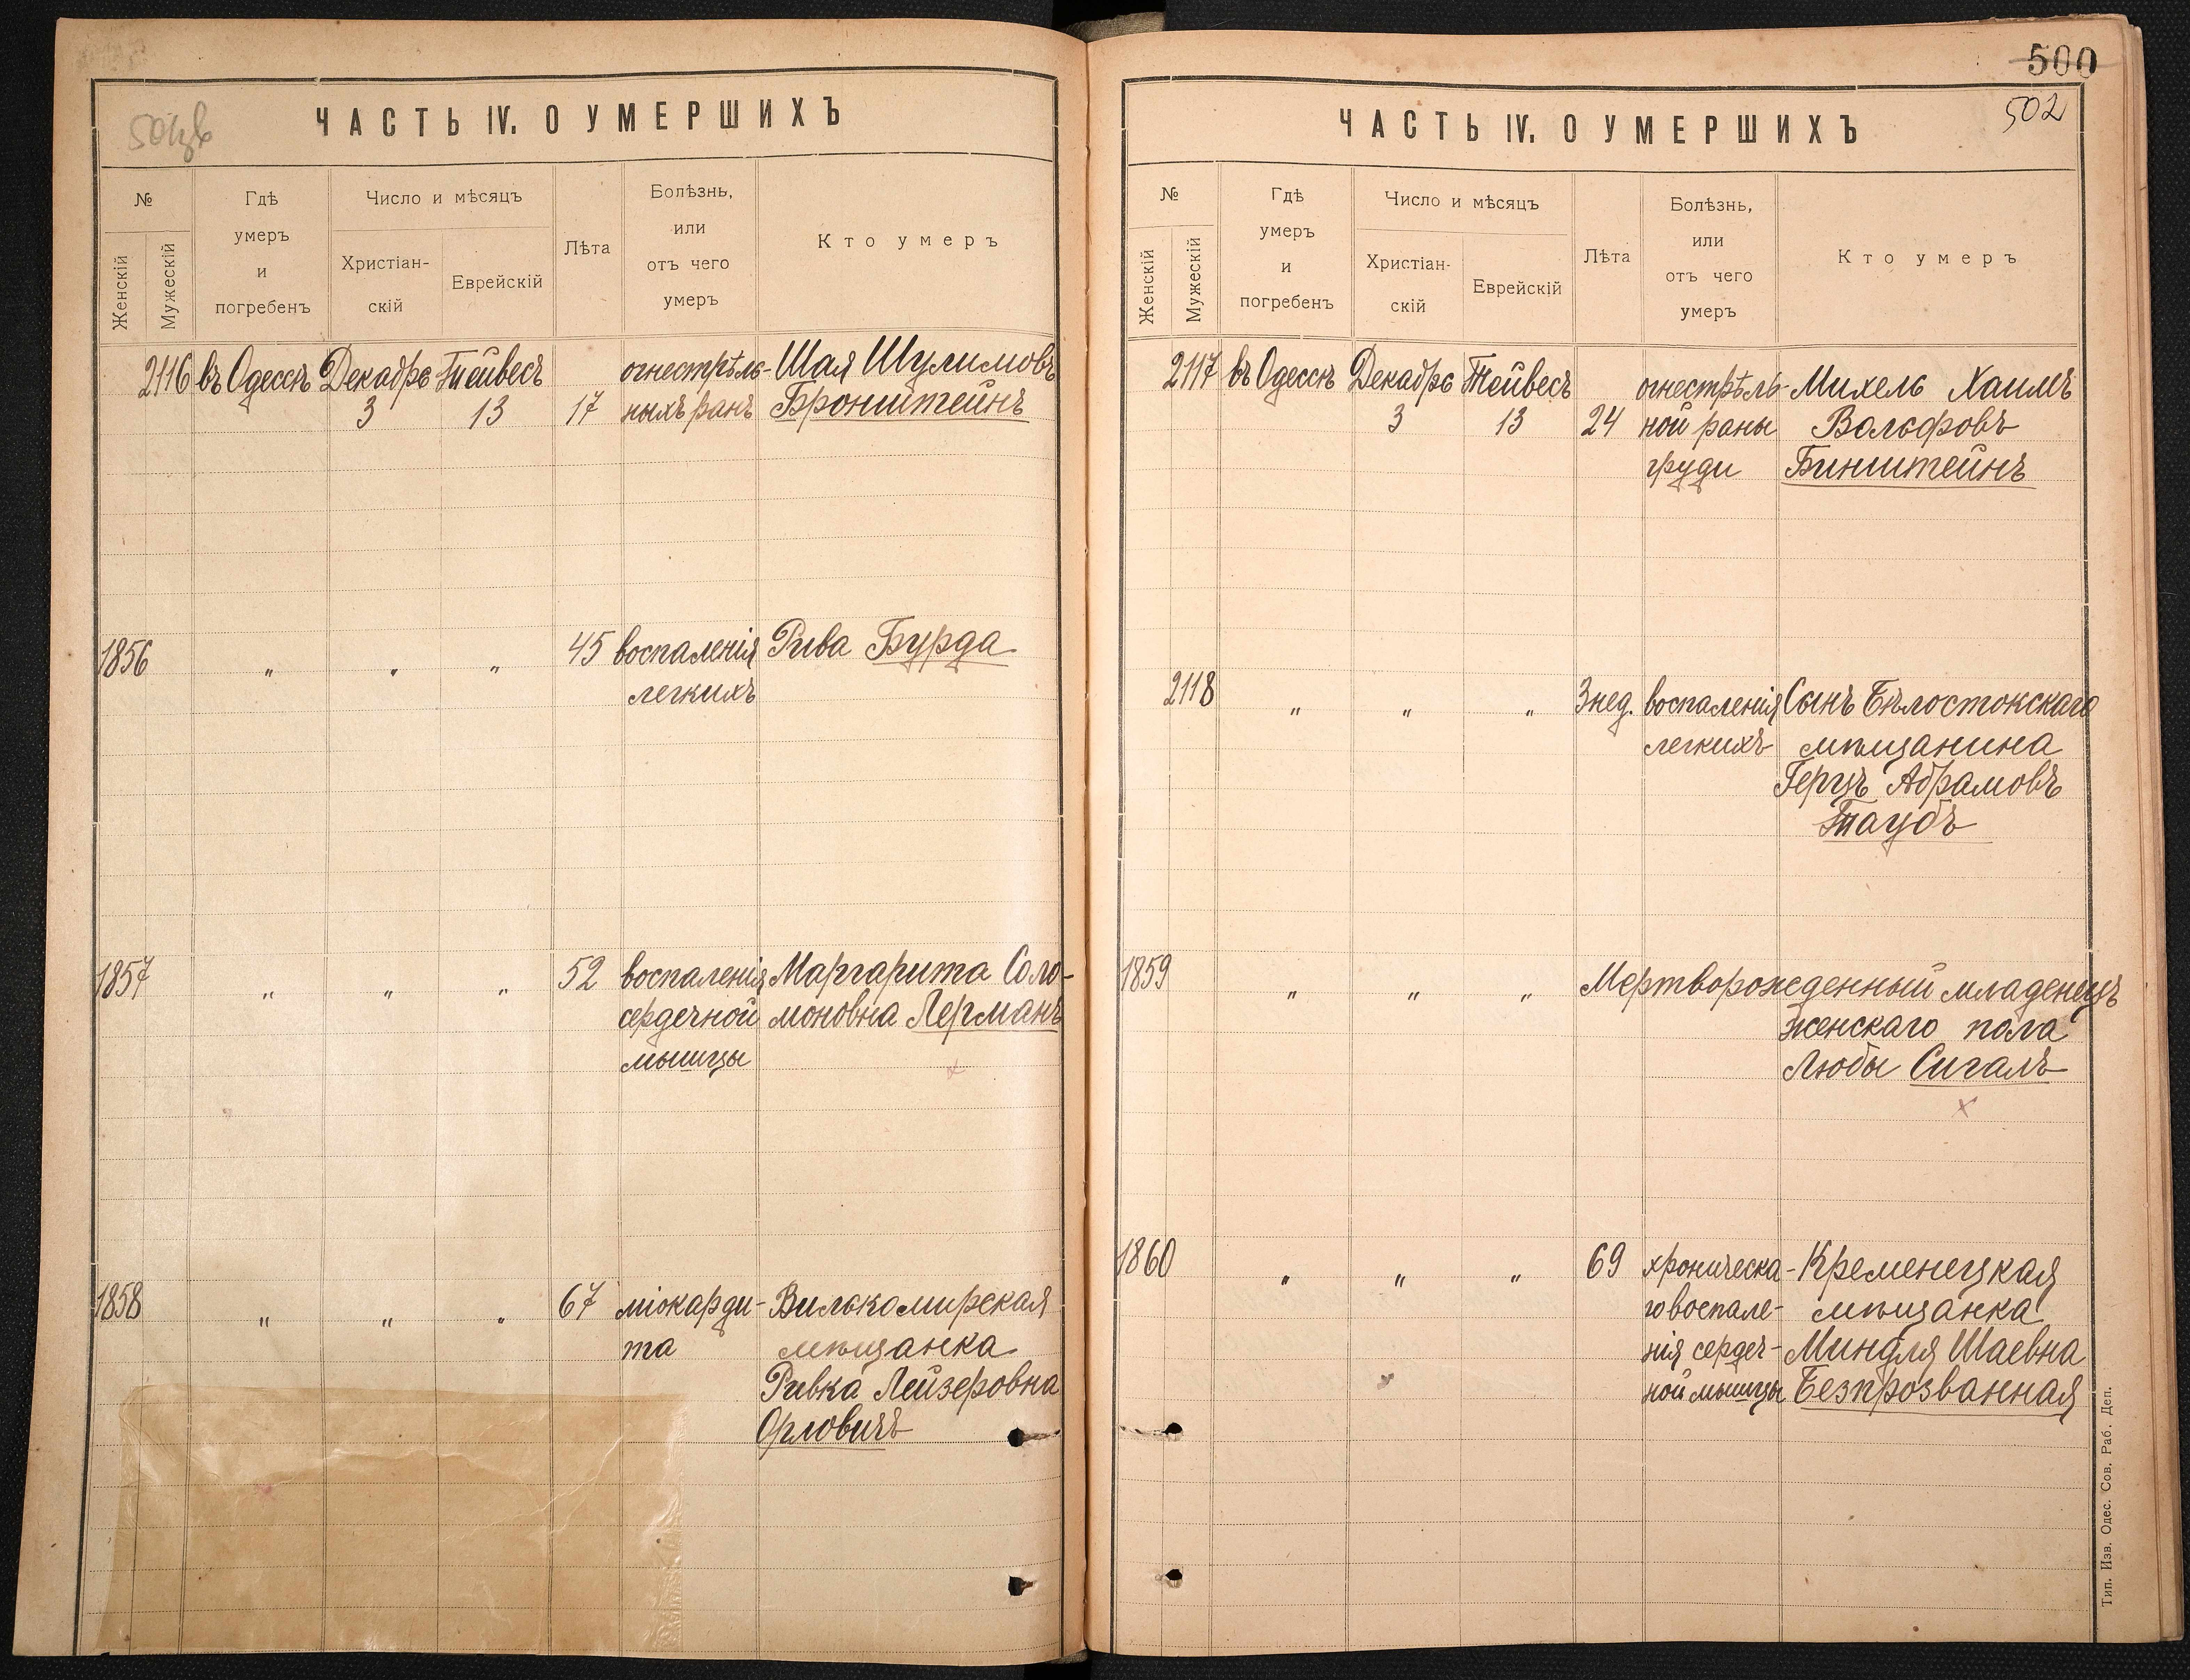 ЧАСТЬ IV. О УМЕРШИХЪ
№
Женскій
Мужескій
Гдѣ
умеръ
и
погребенъ
Число и мѣсяцъ
Христіан-
скій
Еврейскій
Лѣта
Болѣзнь,
или
отъ чего
умеръ
Кто умеръ
2116 въ Одессѣ Декабрь Тейвесъ огнестрѣль- Шая Шулимовъ
3 13 17 ныхъ ранъ Бронштейнъ
1856 " " " 45 воспаленія Рива Бурда
легкихъ
1857 " " " 52 воспаленія Маргарита Соло-
сердечной моновна Лерманъ
мышцы
1858 " " " 67 міокарди- Вилькомирская
та мѣщанка
Ривка Лейзеровна
Орловичъ
500
502
ЧАСТЬ IV. О УМЕРШИХЪ
№
Женскій
Мужескій
Гдѣ
умеръ
и
погребенъ
Число и мѣсяцъ
Христіан-
скій
Еврейскій
Лѣта
Болѣзнь,
или
отъ чего
умеръ
Кто умеръ
2117 въ Одессѣ Декабрь Тейвесъ огнестрѣль- Михель Хаимъ
3 13 24 ной раны Вольфовъ
груди Бинштейнъ
2118 " " " 3 нед. воспаленія Сынъ Бѣлостокскаго
легкихъ мѣщанина
Герцъ Абрамовъ
Таубъ
1859 " " " Мертворожденный младенецъ
женскаго пола
Любы Сигалъ
1860 " " " 69 хроническа- Кременецкая
го воспале- мѣщанка
нія сердеч- Миндля Шаевна
ной мышцы Безпрозванная
Тип. Изв. Одес. Сов. Раб. Деп.